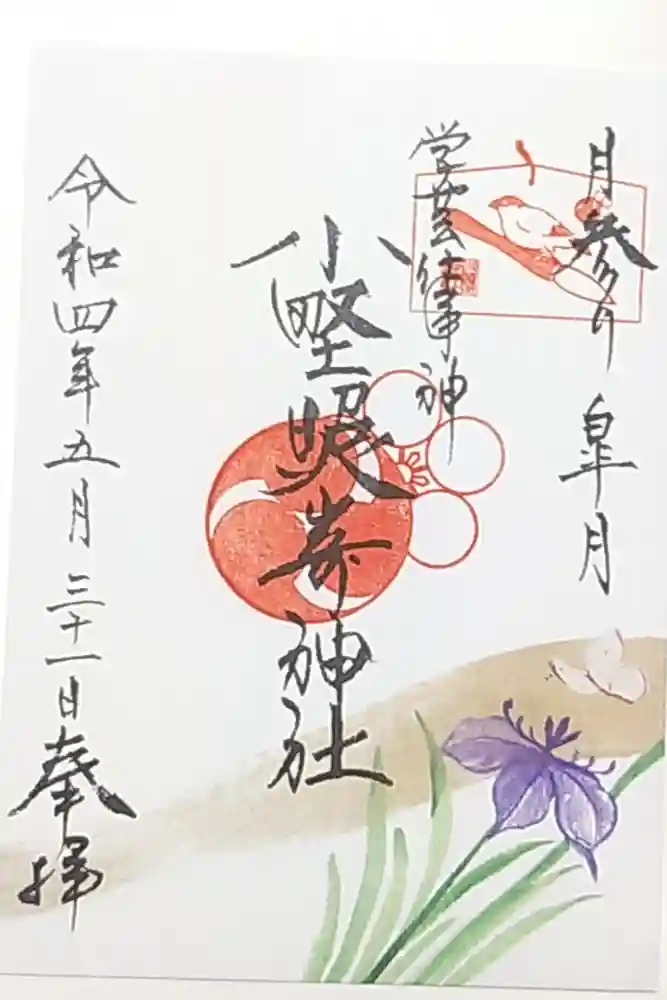 月参り 皐月
学芸仕事神
小野照崎神社
令和四年五月三十一日奉拝